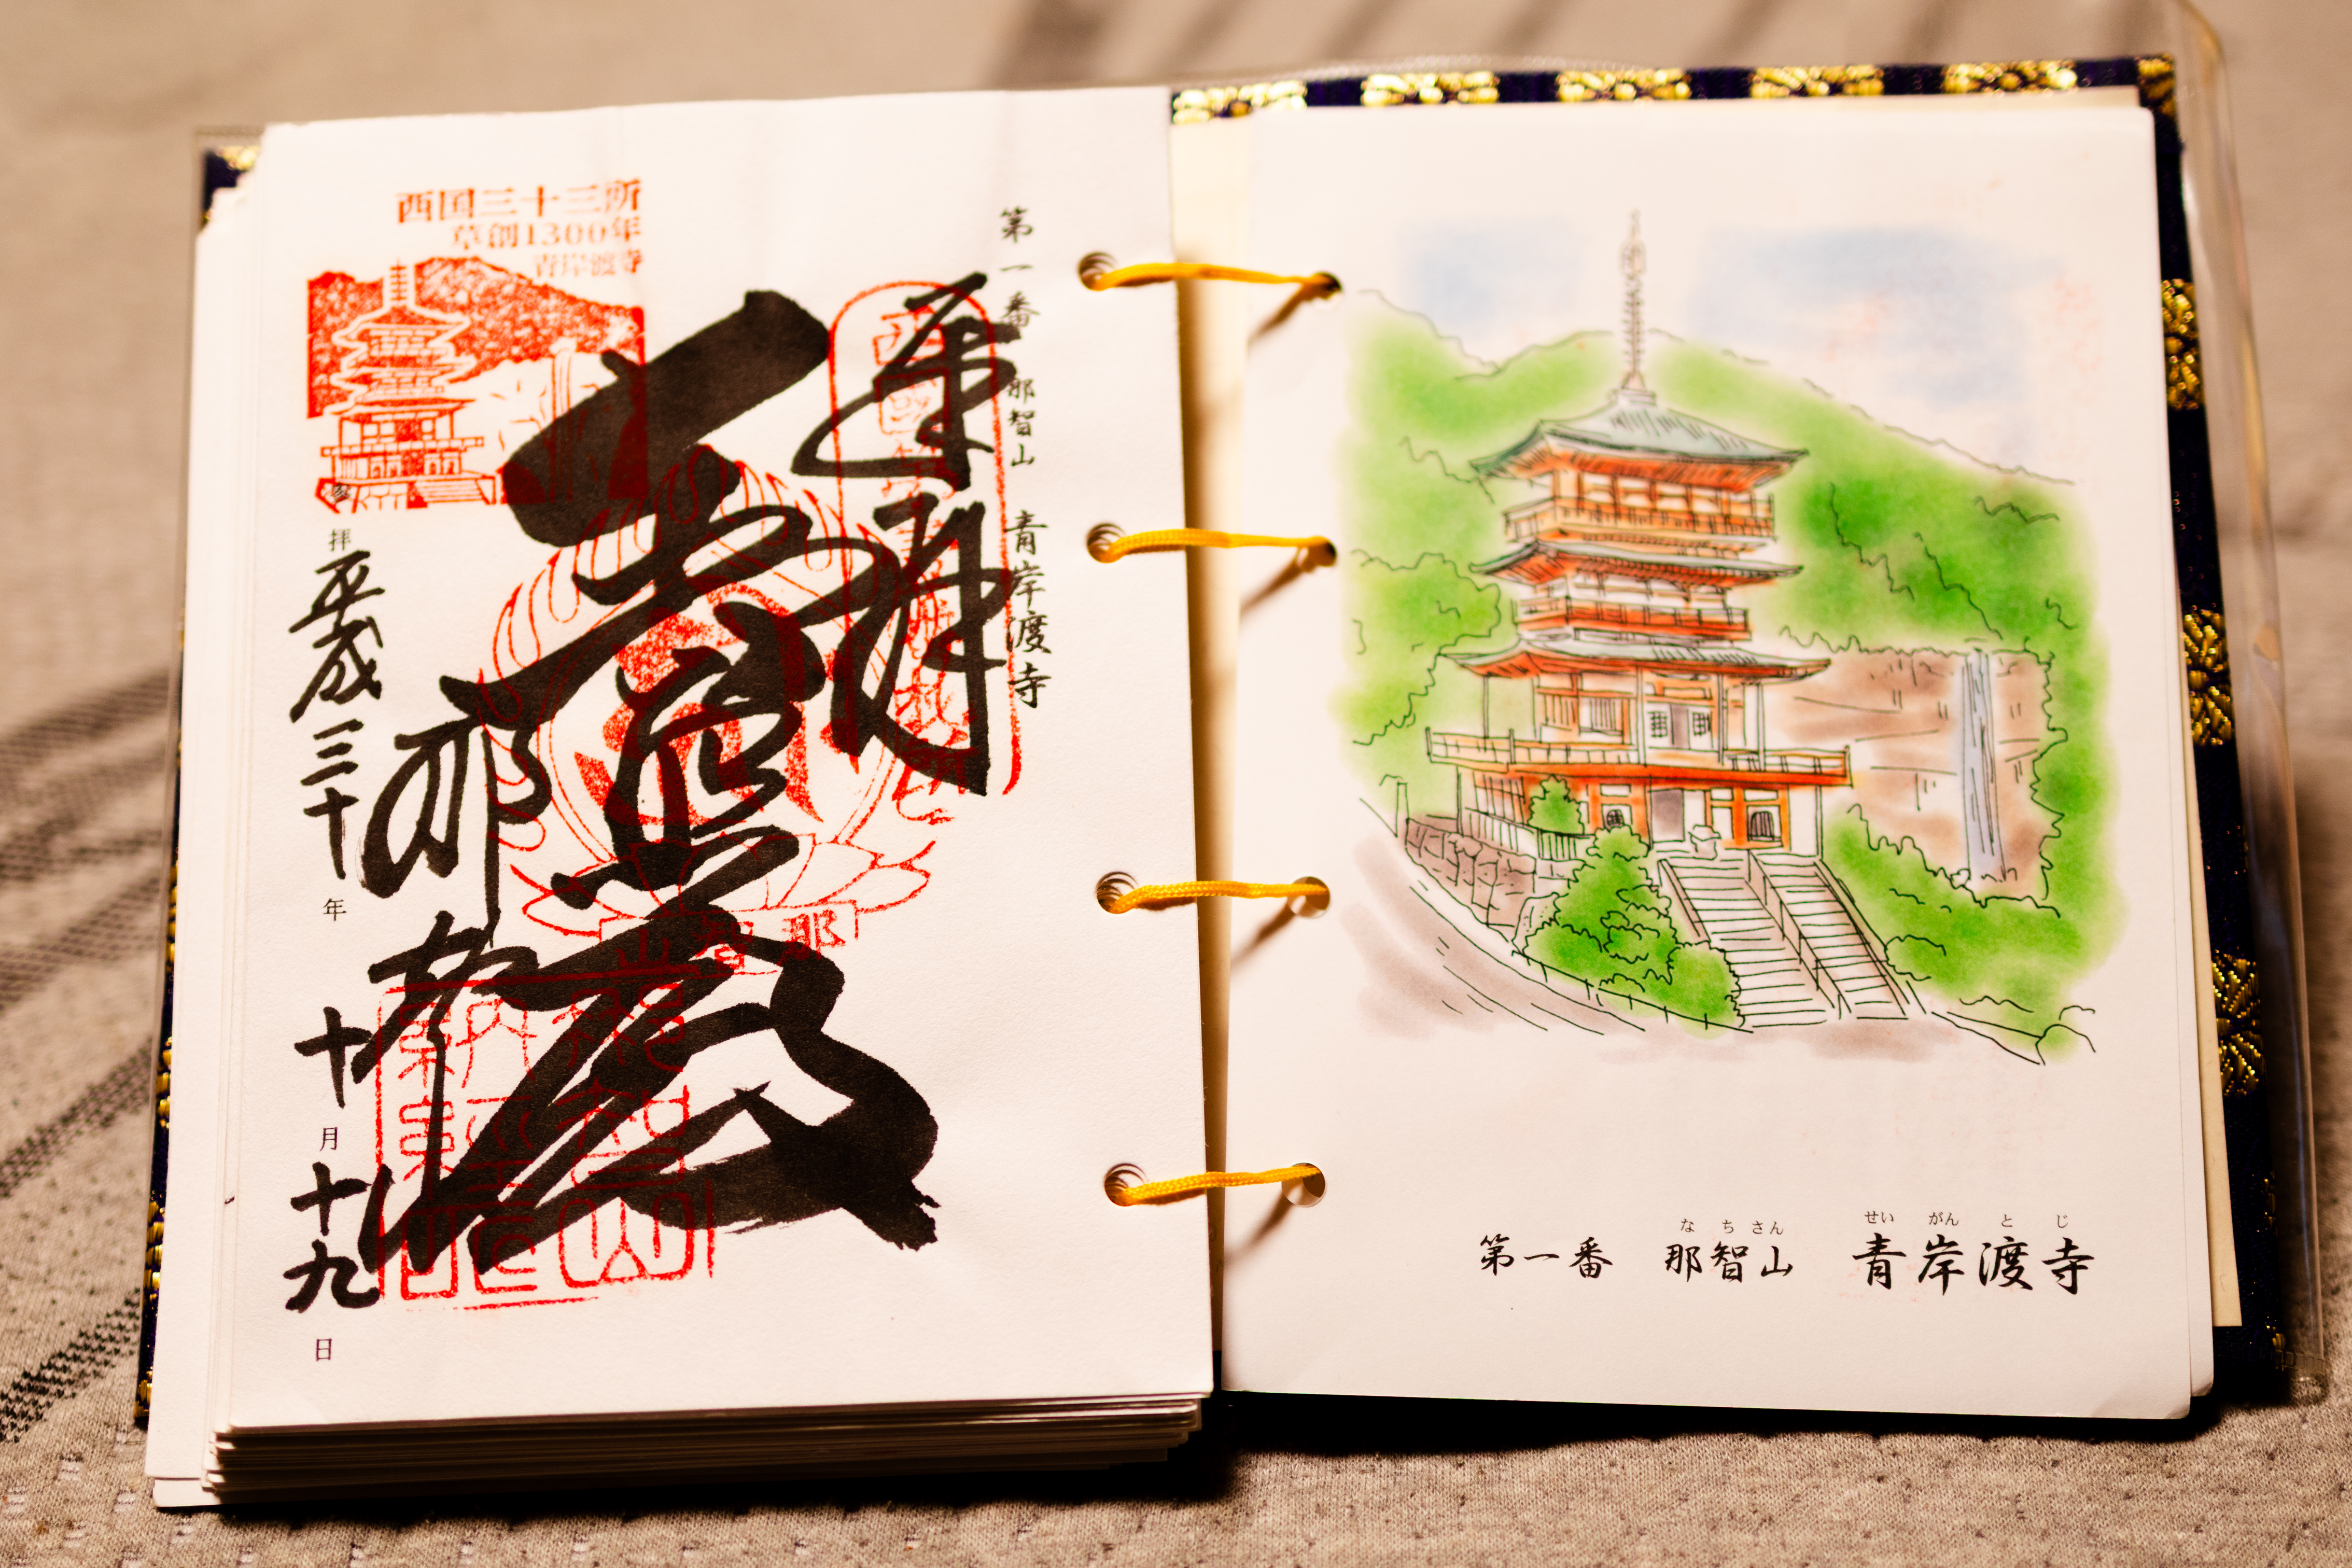 西国三十三所
草創1300年
青岸渡寺
第一番 那智山 青岸渡寺
奉拝
普照殿
那智山
拝
平成三十年十月十九日
那智山
なちさん せいがんとじ
第一番 那智山 青岸渡寺